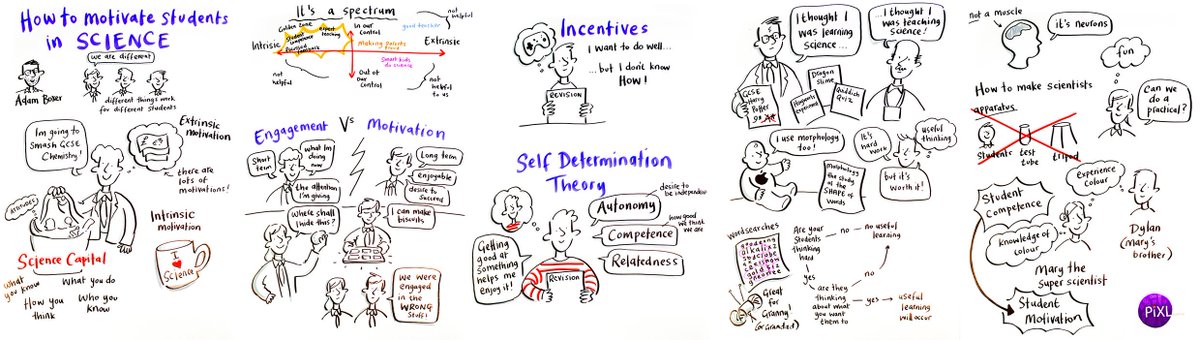 How to motivate students
in SCIENCE
we are different
Adam Boxer
different things work
for different students
I'm going to
Smash GCSE
Chemistry!
£ €9
Extrinsic
motivation
there are
lots of
motivations!
ATTITUDES
Science Capital
What
you know
What you do
How you
think
Who you
know
Intrinsic
motivation
I
Science
It's a spectrum
not
helpful
Golden zone
expert
teaching
In our
control
good teacher
Student
competence
Intrinsic
Making Parents
Proud
Extrinsic
Smart kids
do science
not
helpful
Out of
our
control
not
helpful
to us
Engagement Vs Motivation
Short
term
what I'm
doing
now
the attention
I'm giving
Long term
enjoyable
desire to
succeed
Where shall
I hide this?
I can make
biscuits
We were
engaged
in the
WRONG
Stuff!
Incentives
I want to do well...
...but I don't know
HOW!
REVISION
Self Determination
Theory
Autonomy
desire to
be independent
Competence
how good
we think
we are
Relatedness
Getting
good at
something
helps me
enjoy it!
REVISION
I thought I
was learning
science...
...I thought I
was teaching
science!
GCSE
Harry
Potter
Dragon
Slime
Hogwarts
Experiment
Quidditch
Quiz
I use morphology
too!
Morphology
the study
of the
SHAPE of
words
It's
hard
work
useful
thinking
but it's
worth it!
Wordsearches
Great
for
Granny!
(or Grandad)
Are your
Students
thinking
hard
no
no useful
learning
yes
no
are they
thinking
about what
you want
them to
yes
useful
learning
will occur
not a muscle
it's neurons
fun
Can we
do a
practical?
How to make scientists
apparatus
Students
test
tube
tripod
Student
Competence
Experience
Colour
Knowledge of
colour
Dylan
(Mary's
brother)
Mary the
super scientist
Student
Motivation
PiXL